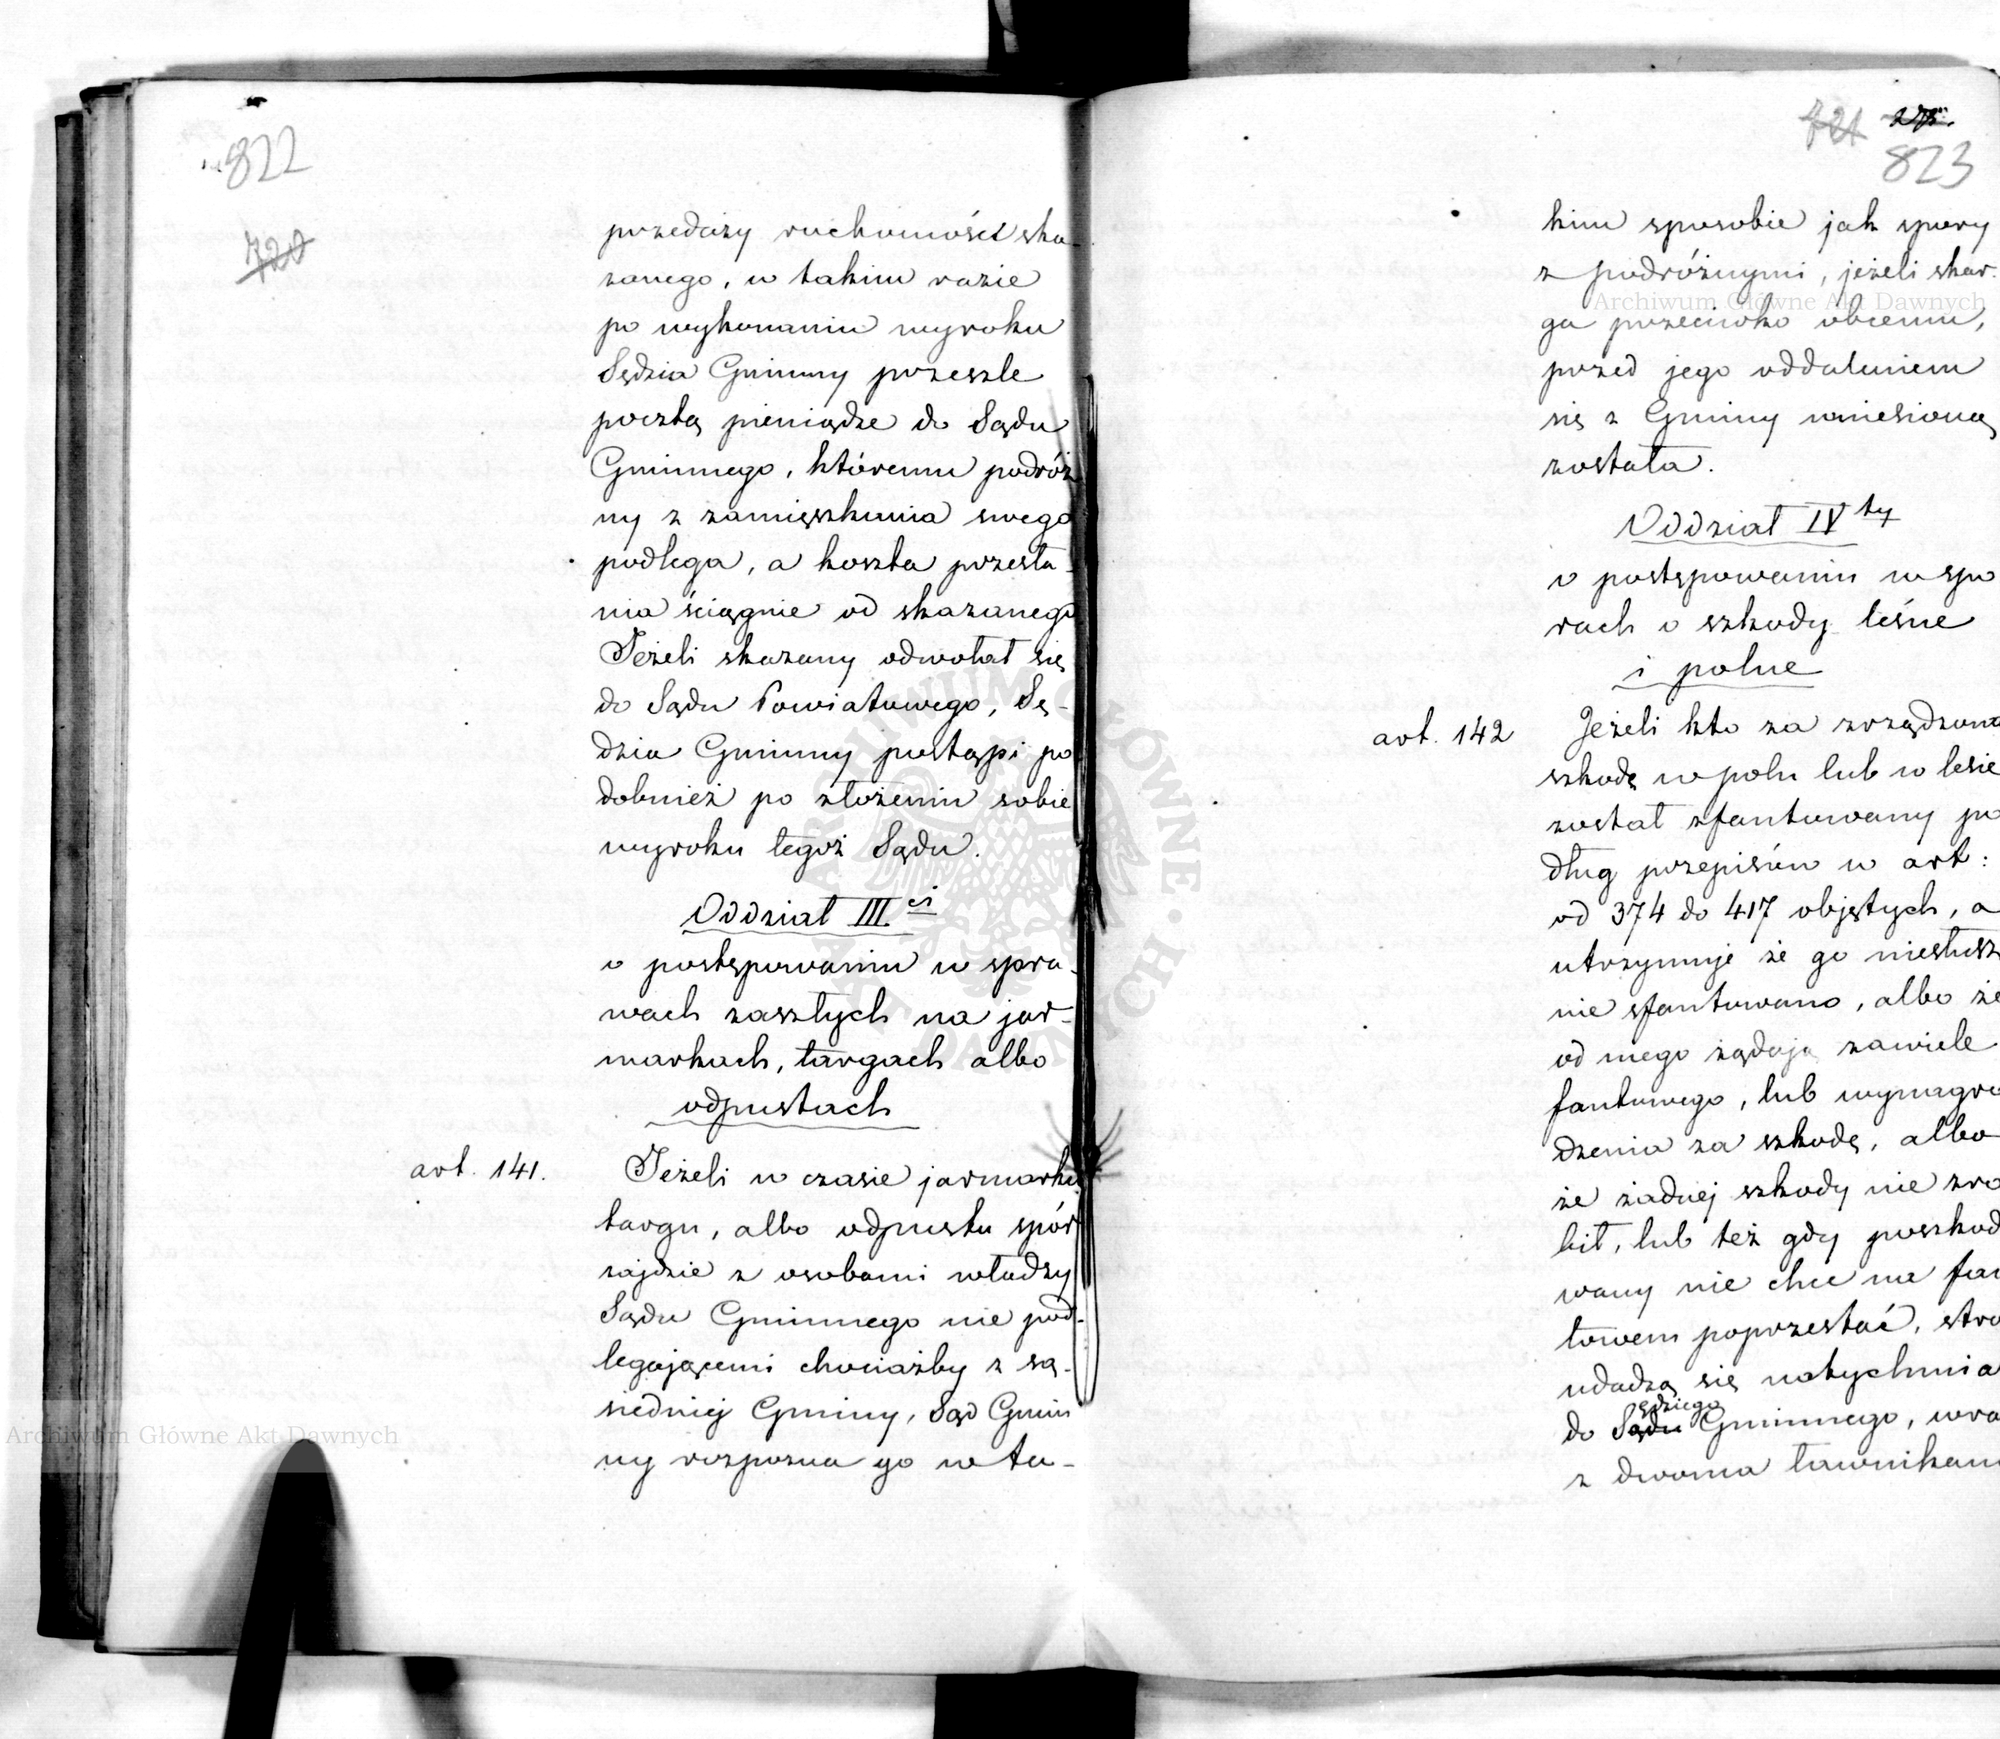 822
720
przedaży ruchomości ska-
zanego, w takim razie
po wykonaniu wyroku
Sędzia Gminny przeszle
pocztą pieniądze do Sądu
Gminnego, któremu podróż
ny z zamięszkania swego
podlega, a koszta przesła-
nia ściągnie od skazanego
Jeżeli skazany odwołał się
do Sądu Powiatowego, Sę-
dzia Gminny postąpi po
dobnież po złożeniu sobie
wyroku tegoż Sądu.
Oddział III ci
o postępowaniu w spra-
wach zaszłych na jar-
markach, targach albo
odpustach
art. 141.
Jeżeli w czasie jarmarku
targu, albo odpustu spór
zajdzie z osobami władzy
Sądu Gminnego nie pod-
legającemi chociażby z są-
siedniej Gminy, Sąd Gmin
ny rozpozna go w ta-
721
823
kim sposobie jak spory
z podróżnymi, jeżeli skar-
ga przeciwko obcemu,
przed jego oddaleniem
się z Gminy wniesioną
została.
Oddział IV ty
o postępowaniu w spo
rach o szkody leśne
i polne
art. 142
Jeżeli kto za zrządzoną
szkodę w polu lub w lesie
został zfantowany po
dług przepisów w art:
od 374 do 417 objętych, a
utrzymuje że go niesłusz
nie sfantowano, albo że
od niego żądają zawiele
fantowego, lub wynagro
dzenia za szkodę, albo
że żadnej szkody nie zro
bił, lub też gdy poszkod
wany nie chce na fan
towem poprzestać, stro
udadzą się natychmia
ędziego
do Sądu Gminnego, wra
z dwoma ławnikam
Archiwum Główne Akt Dawnych
Archiwum Główne Akt Dawnych
ARCHIWUM GŁÓWNE AKT DAWNYCH